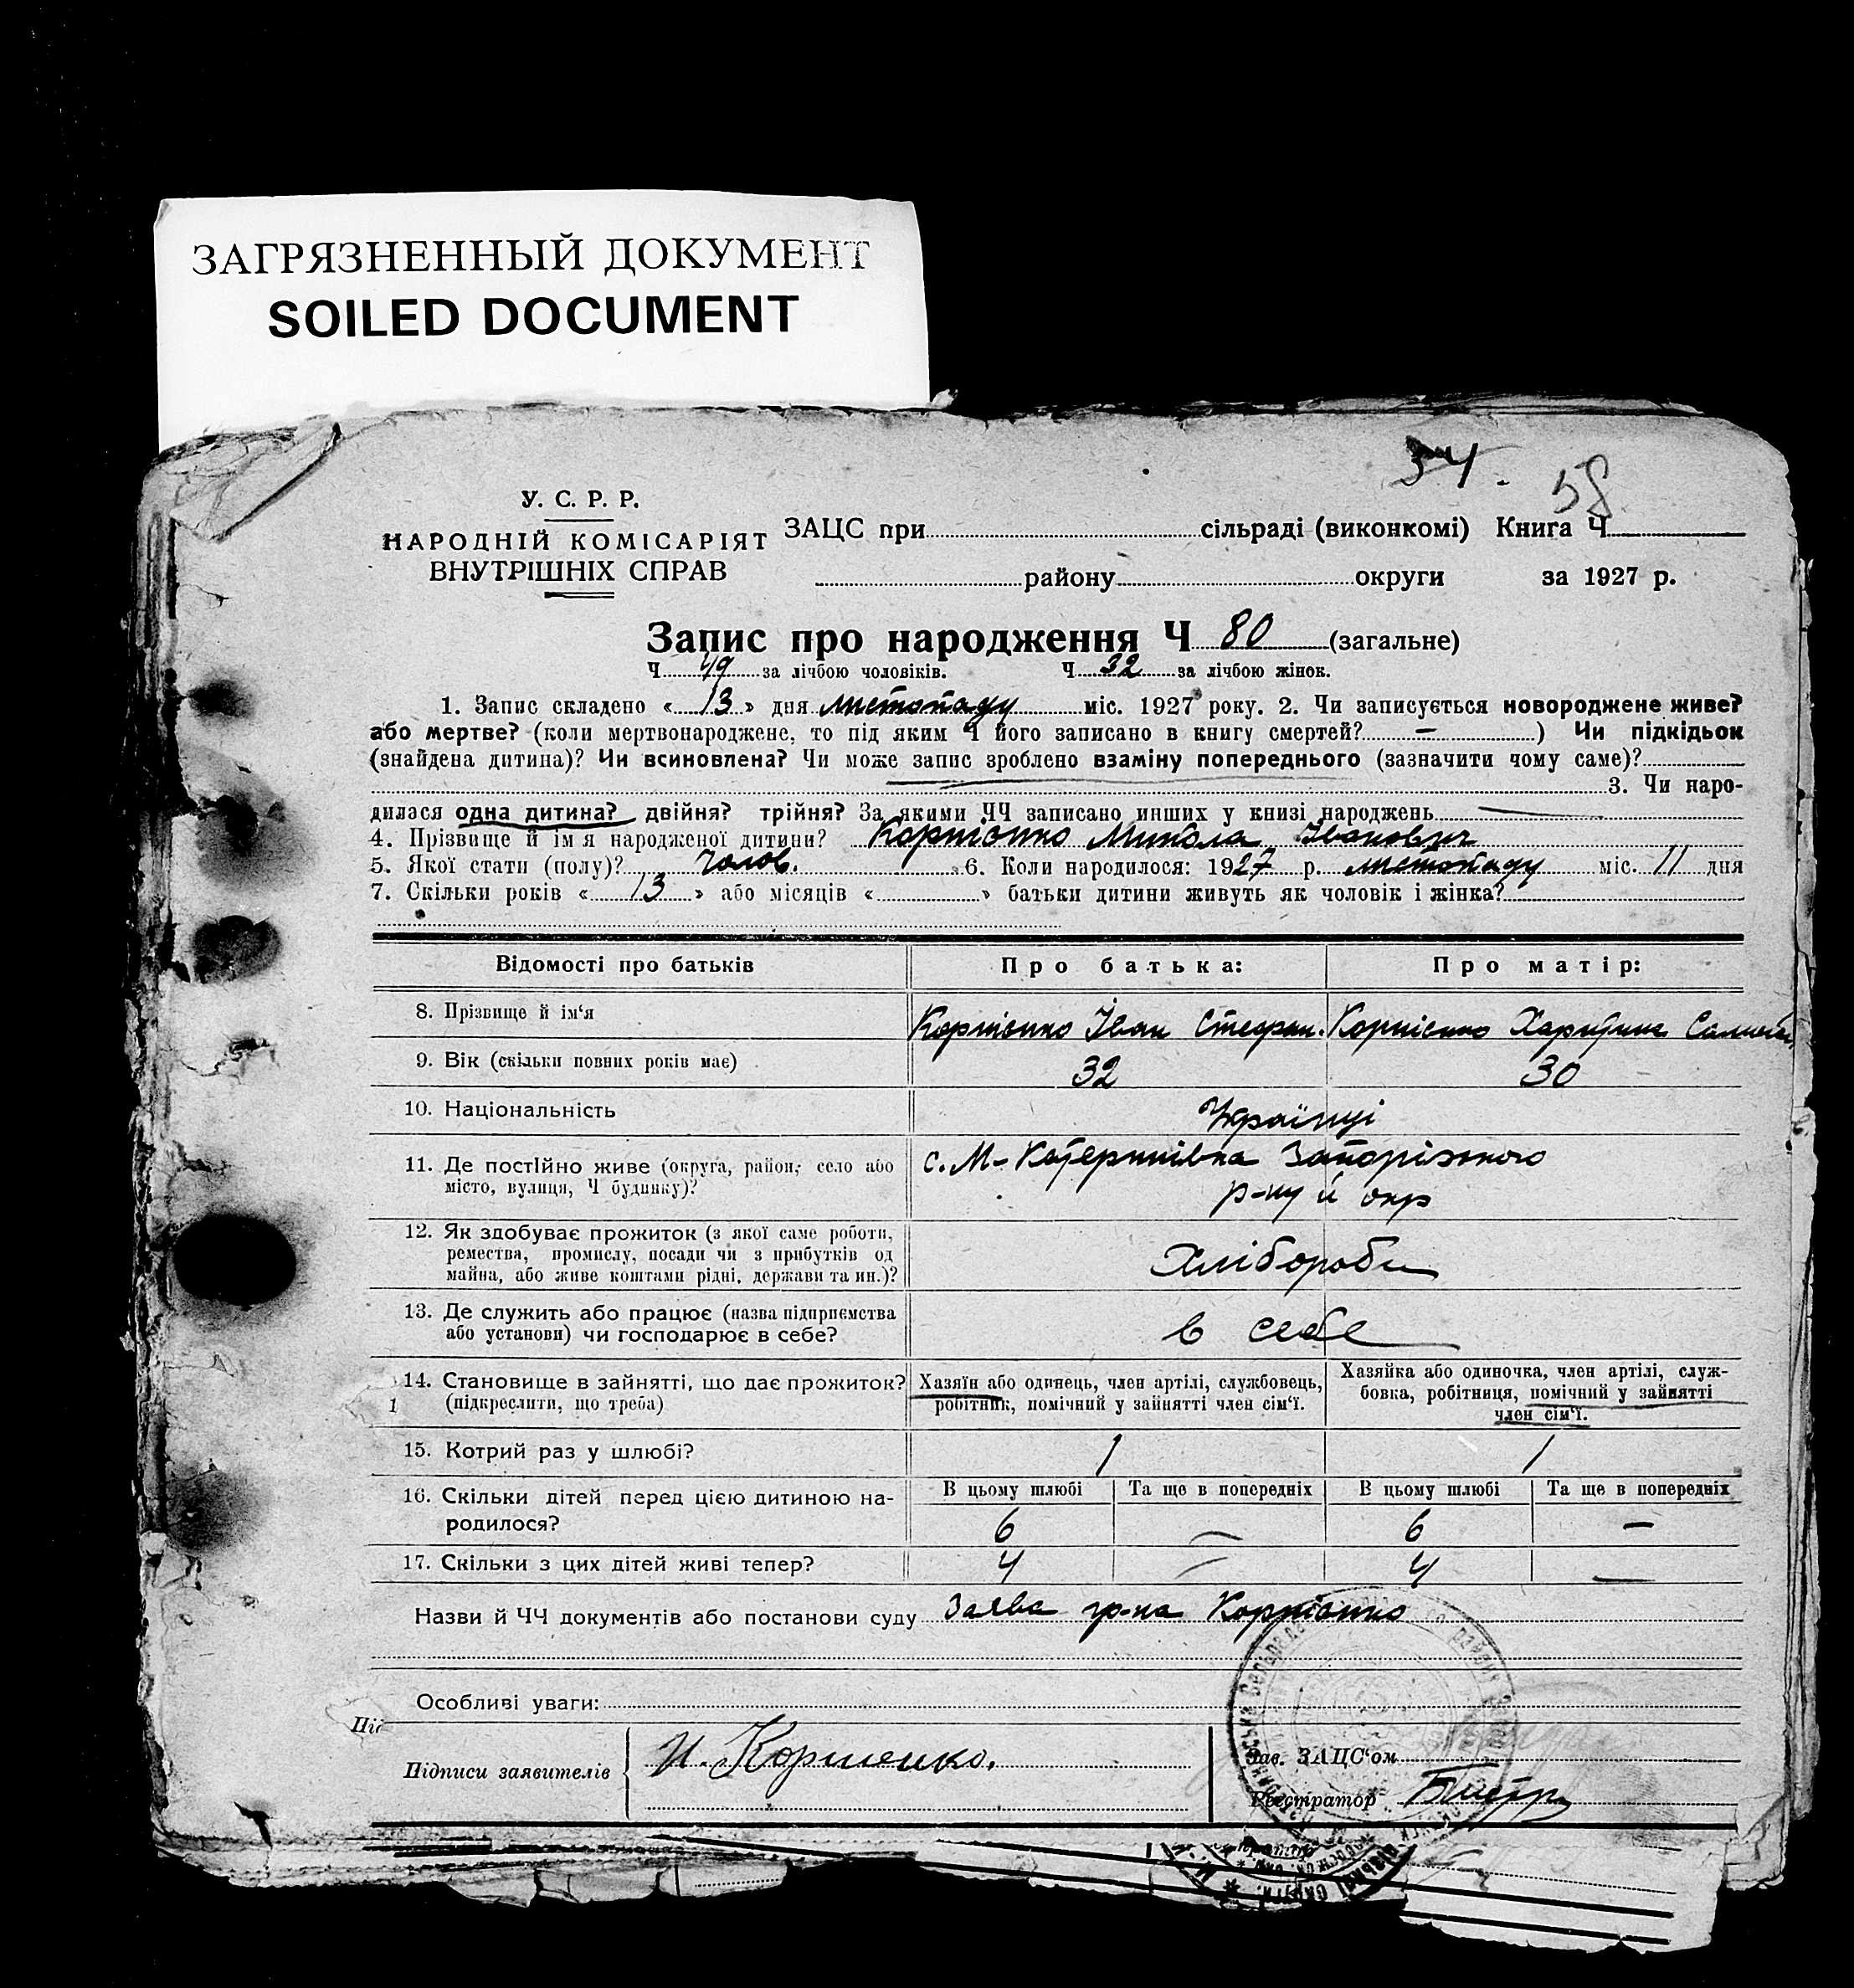 ЗАГРЯЗНЕННЫЙ ДОКУМЕНТ
SOILED DOCUMENT
34.
58
У. С. Р. Р.
НАРОДНІЙ КОМІСАРІЯТ
ВНУТРІШНІХ СПРАВ
ЗАЦС при сільраді (виконкомі) Книга Ч
району округи за 1927 р.
Запис про народження Ч 80 (загальне)
Ч 49 за лічбою чоловіків. Ч 32 за лічбою жінок.
1. Запис складено « 13 » дня листопаду міс. 1927 року. 2. Чи записується новороджене живе?
або мертве? (коли мертвонароджене, то під яким Ч його записано в книгу смертей? — ) Чи підкідьок
(знайдена дитина)? Чи всиновлена? Чи може запис зроблено взаміну попереднього (зазначити чому саме)?
3. Чи наро-
дилася одна дитина? двійня? трійня? За якими ЧЧ записано инших у книзі народжень —
4. Прізвище й ім'я народженої дитини? Корпієнко Микола Іванович
5. Якої стати (полу)? Чолов. 6. Коли народилося: 1927 р. листопаду міс. 11 дня
7. Скільки років « 13 » або місяців « » батьки дитини живуть як чоловік і жінка?
Відомості про батьків Про батька: Про матір:
8. Прізвище й ім'я Корпієнко Іван Стефан. Корпієнко Харитина
9. Вік (скільки повних років має) 32 30
10. Національність Українці
11. Де постійно живе (округа, район, село або
місто, вулиця, Ч будинку)?
с. М-Катеринівка Запорізького
р-ну й окр
12. Як здобуває прожиток (з якої саме роботи,
ремества, промислу, посади чи з прибутків од
майна, або живе коштами рідні, держави та ин.)?
Хлібороби
13. Де служить або працює (назва підприємства
або установи) чи господарює в себе?
в себе
14. Становище в зайнятті, що дає прожиток?
(підкреслити, що треба)
Хазяїн або одинець, член артілі, службовець,
робітник, помічний у зайнятті член сім'ї.
Хазяйка або одиночка, член артілі, служ-
бовка, робітниця, помічний у зайнятті
член сім'ї.
15. Котрий раз у шлюбі? 1 1
16. Скільки дітей перед цією дитиною на-
родилося?
В цьому шлюбі Та ще в попередніх В цьому шлюбі Та ще в попередніх
6 — 6 —
17. Скільки з цих дітей живі тепер? 4 — 4 —
Назви й ЧЧ документів або постанови суду Заява гр-на Корпієнко
Особливі уваги:
Під
Підписи заявителів И. Корпиенко.
Зав. ЗАЦС'ом
Реєстратор